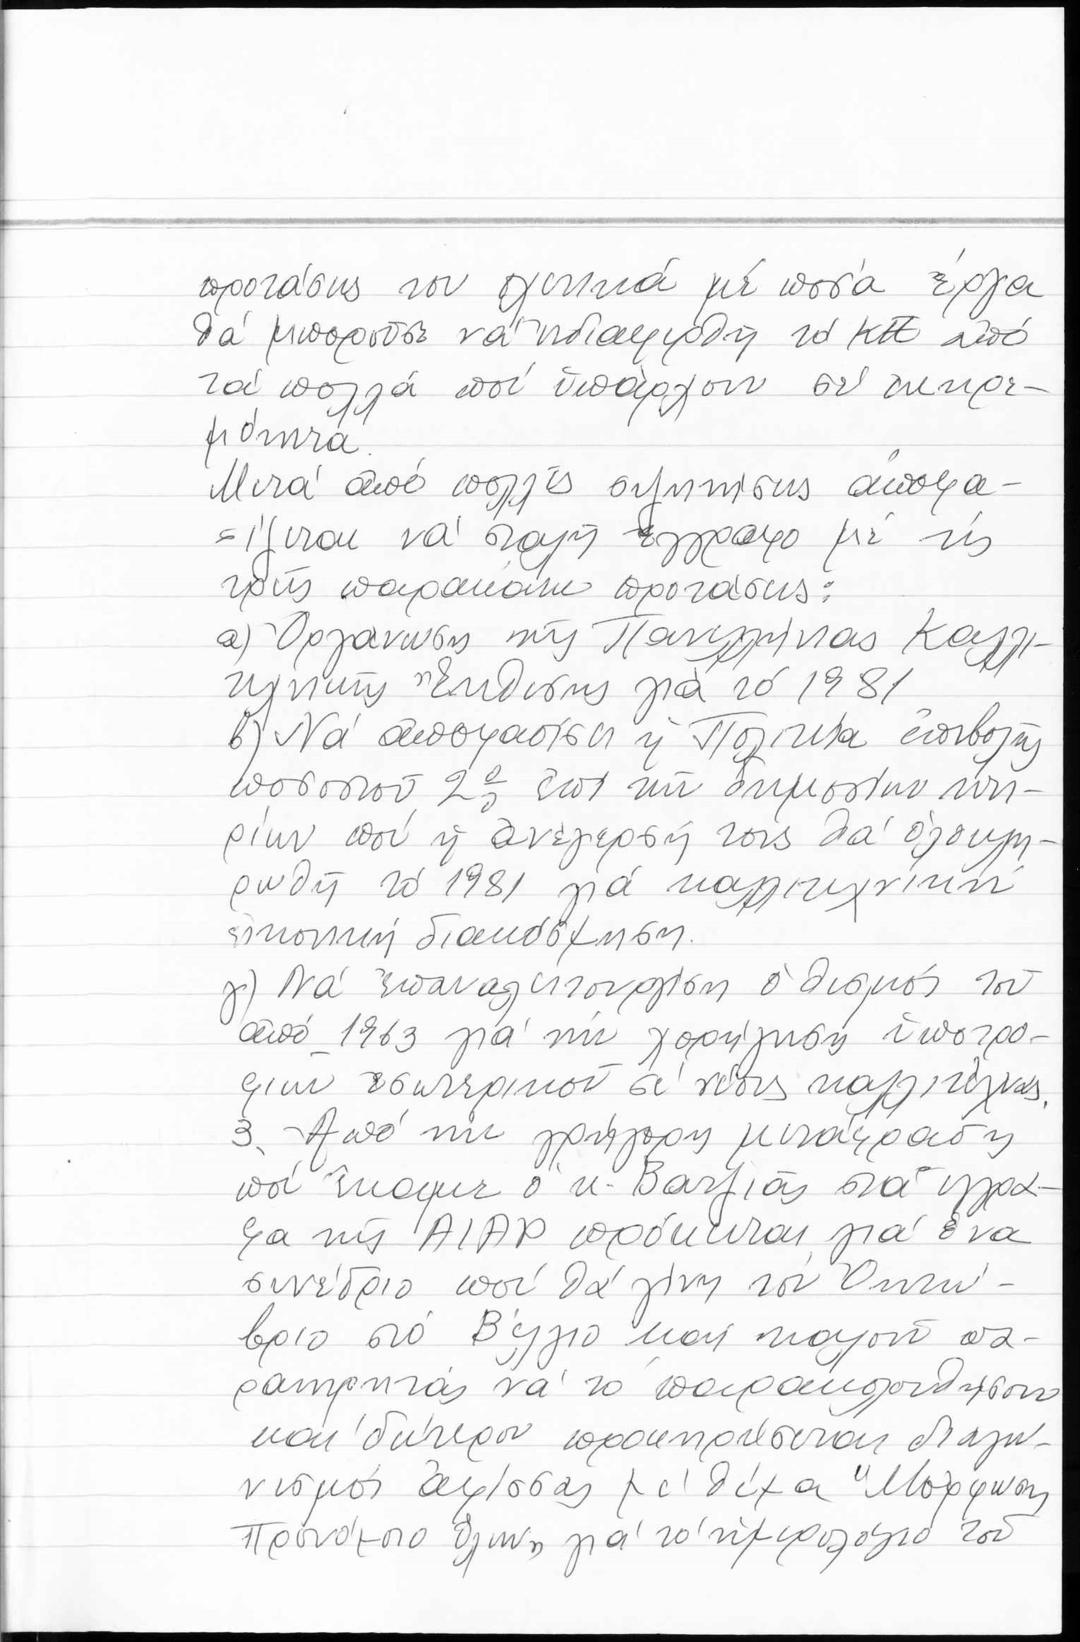 προτάσεις του σχετικά μέ ποσά έργα
θά μποροῦσε νά ἐνδιαφερθῆ τό ΚΠ από
τά πολλά πού ὑπάρχουν σέ εκκρε-
μότητα.
Μετά ἀπό πολλές συζητήσεις ἀποφα-
σίζεται νά σταλῆ ἔγγραφο μέ τίς
τρεῖς παρακάτω προτάσεις:
α) Ὀργάνωση τῆς Πανελλήνιας Καλλι-
τεχνικῆς Ἐκθέσης γιά τό 1981
β) Νά ἀποφασίσει ἡ Πολιτεία ἐπιβολῆς
ποσοστοῦ 2% ἐπί τῶν δημοσίων κτη-
ρίων πού ἡ ἀνέγερσή τους θά ὁλοκλη-
ρωθῆ τό 1981 γιά καλλιτεχνική
εἰκαστική διακόσμηση.
γ) Νά ἐπαναλειτουργήση ὁ θεσμός τοῦ
ἀπό 1963 γιά τήν χορήγηση ὑποτρο-
φιων εσωτερικοῦ σέ νέους καλλιτέχνες.
3. Ἀπό τήν γρήγορη μετάφραση
πού ἔκαμε ὁ κ. Βατζιᾶς στά ἔγγρα-
φα τῆς AIAP πρόκειται γιά ἕνα
συνέδριο πού θά γίνη τόν Ὀκτώ-
βριο στό Βέλγιο και καλοῦν πα-
ρατηρητάς νά τό παρακολουθήσουν
και δεύτερον προκηρύσσεται διαγω-
νισμός ἀφίσσας μέ θέμα "Μόρφωση
Προνόμιο ὅλων" γιά τό ἡμερολόγιο τοῦ